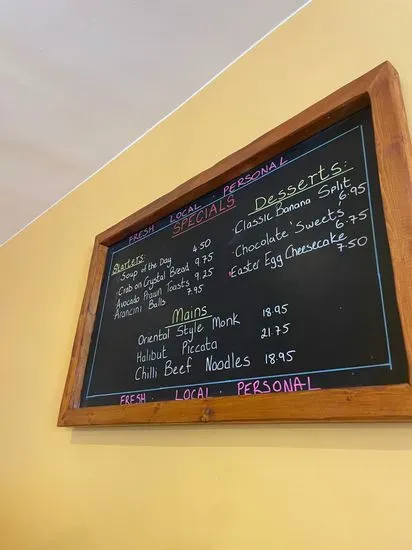 FRESH LOCAL PERSONAL
SPECIALS
Starters:
Soup of the Day 4.50
Crab on Crystal Bread 9.75
Avocado Prawn Toasts 9.25
Arancini Balls 7.95
Mains
Oriental Style Monk 18.95
Halibut Piccata 21.75
Chilli Beef Noodles 18.95
Desserts:
Classic Banana Split 6.95
Chocolate 'Sweets' 6.75
Easter Egg Cheesecake 7.50
FRESH LOCAL PERSONAL